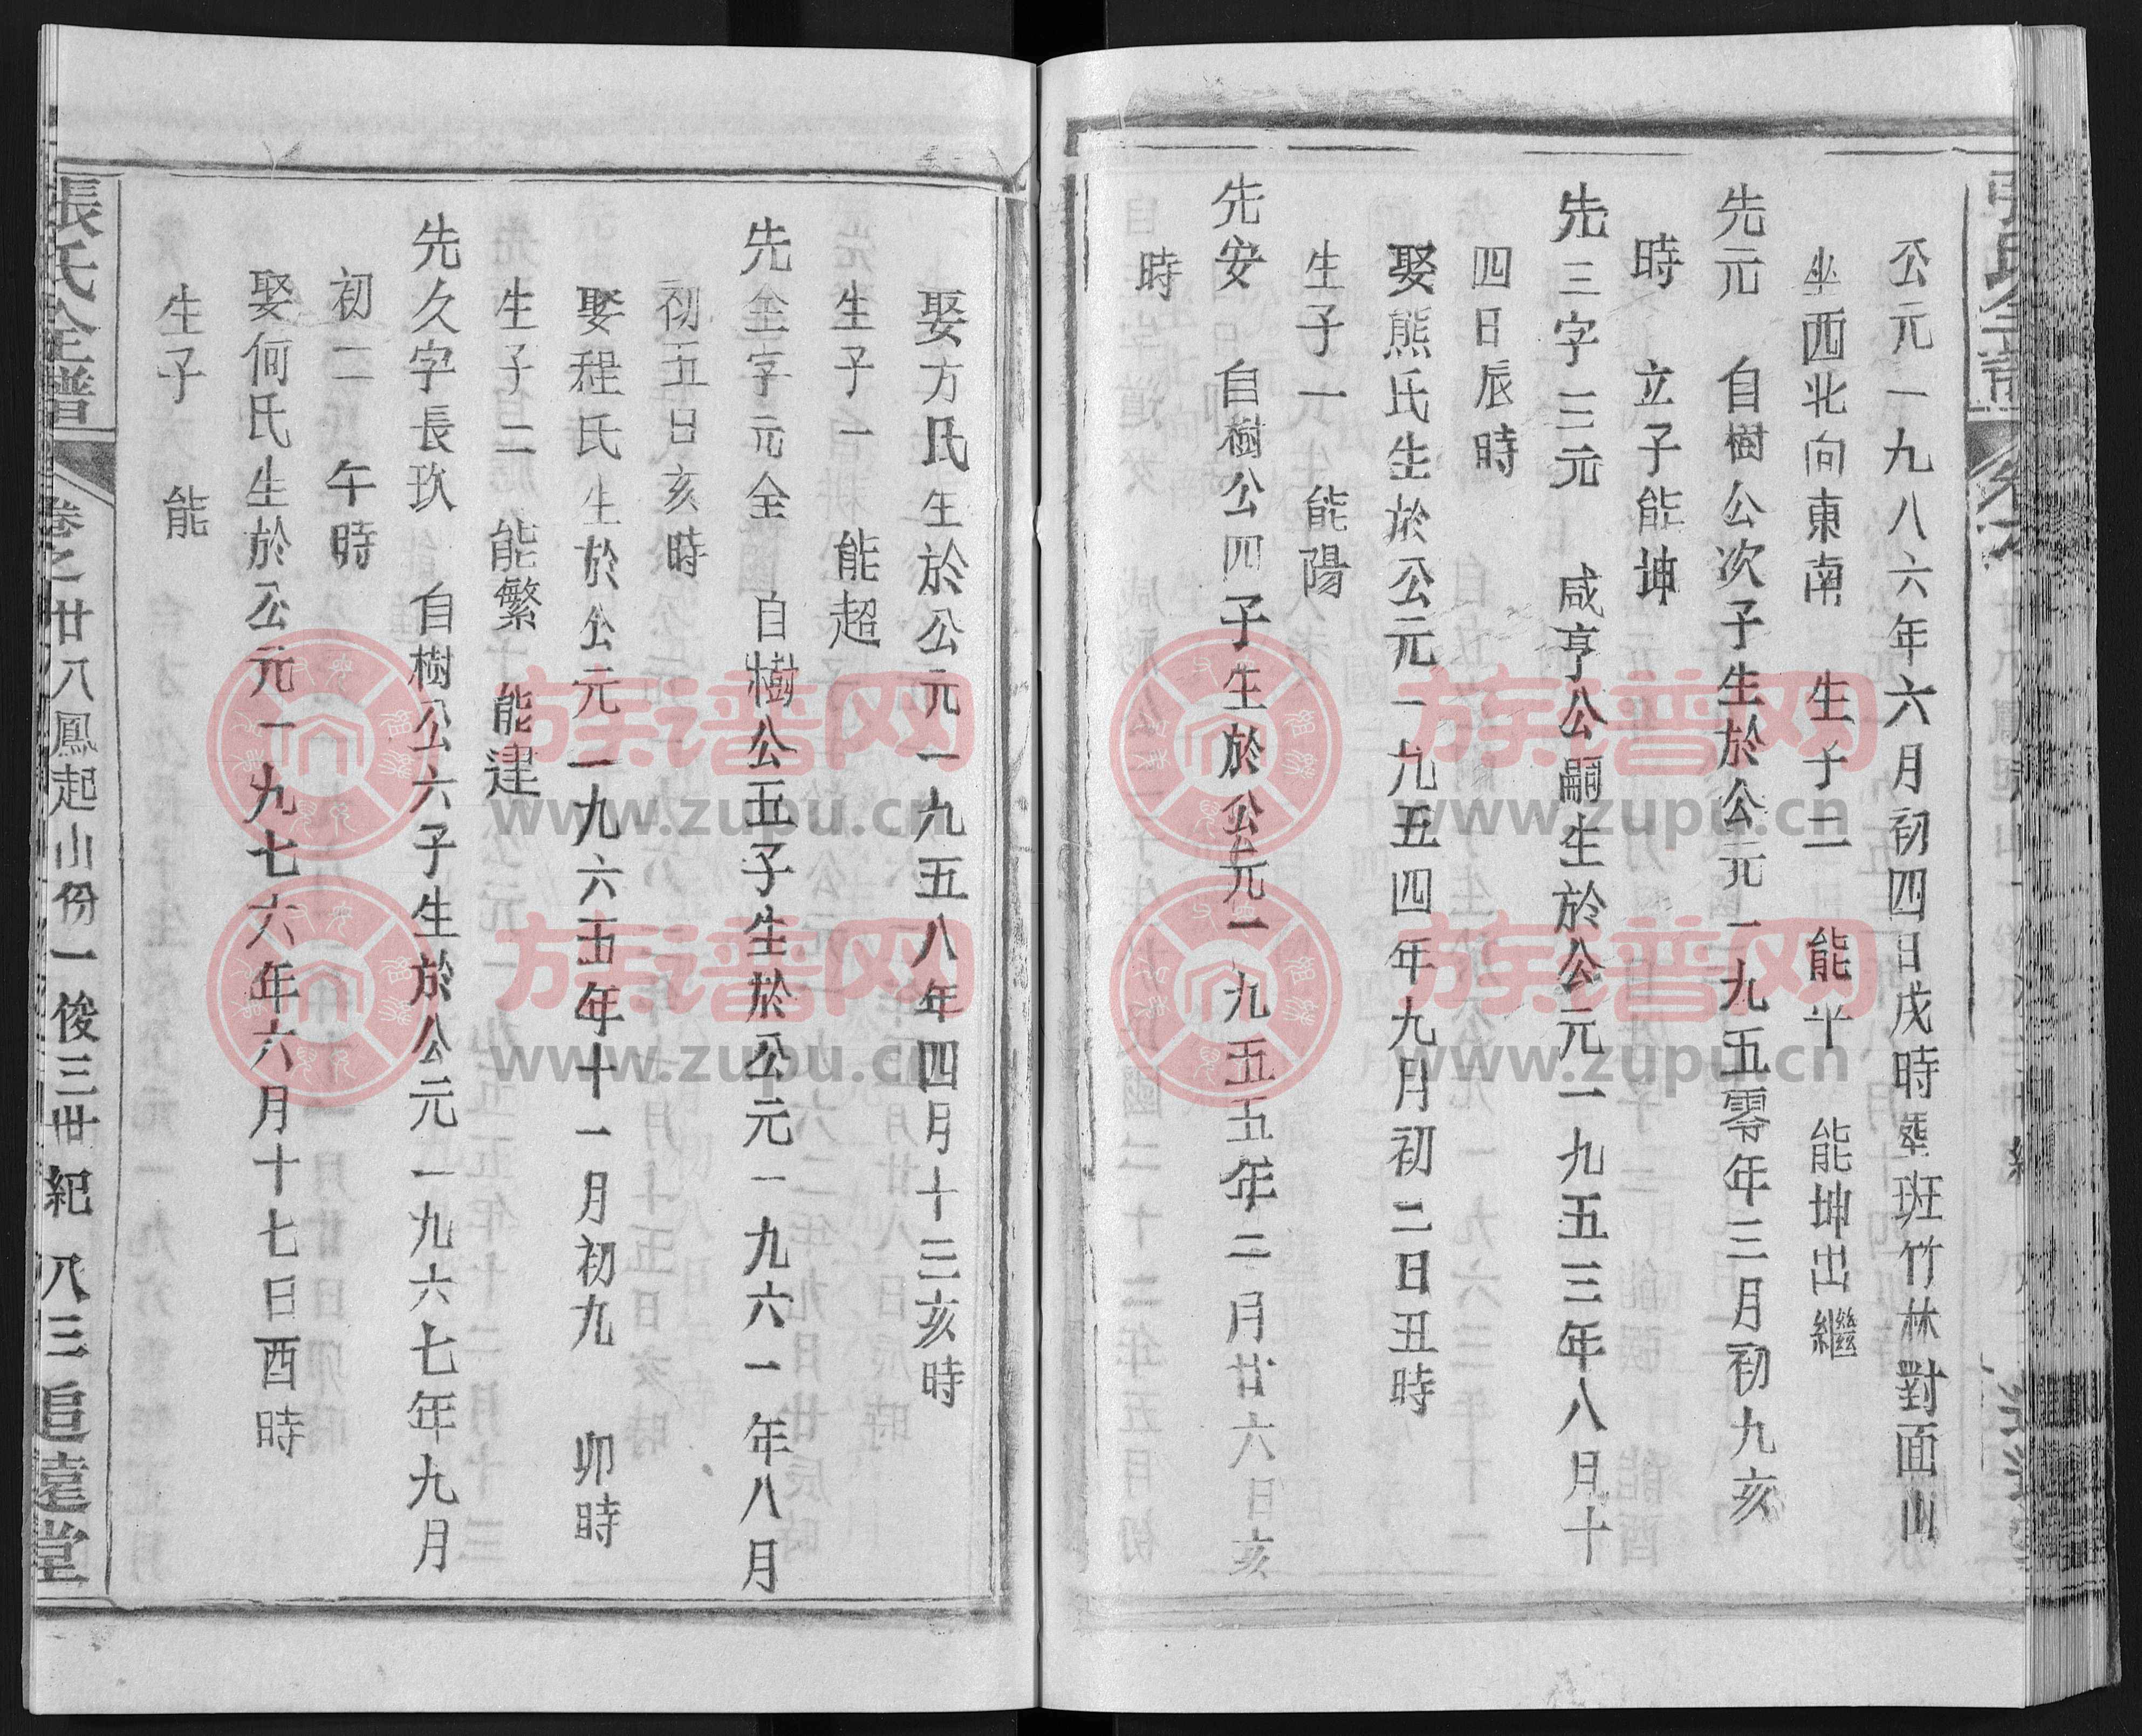 公元一九八六年六月初四日戌時塟班竹林對面山
坐西北向東南 生子二 能平 能坤出繼
先元 自樹公次子生於公元一九五零年三月初九亥
時 立子能坤
先三字三元 咸亨公嗣生於公元一九五三年八月十
四日辰時
娶熊氏生於公元一九五四年九月初二日丑時
生子一 能陽
先安 自樹公四子生於公元一九五五年二月廿六日亥
時
娶方氏生於公元一九五八年四月十三亥時
生子一 能超
先全字元全 自樹公五子生於公元一九六一年八月
初五日亥時
娶程氏生於公元一九六五年十一月初九 卯時
生子二 能繁 能建
先久字長玖 自樹公六子生於公元一九六七年九月
初二 午時
娶何氏生於公元一九七六年六月十七日酉時
生子 能
張氏全譜 卷之廿八鳳起山份一俊三世紀 八三追遠堂
族谱网
www.zupu.cn
族谱网
www.zupu.cn
族谱网
www.zupu.cn
族谱网
www.zupu.cn